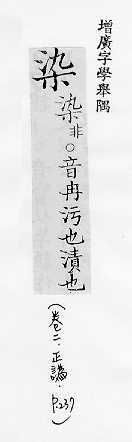 增廣字學舉隅
染染非○音冉污也漬也
(卷二.正譌.P.237)